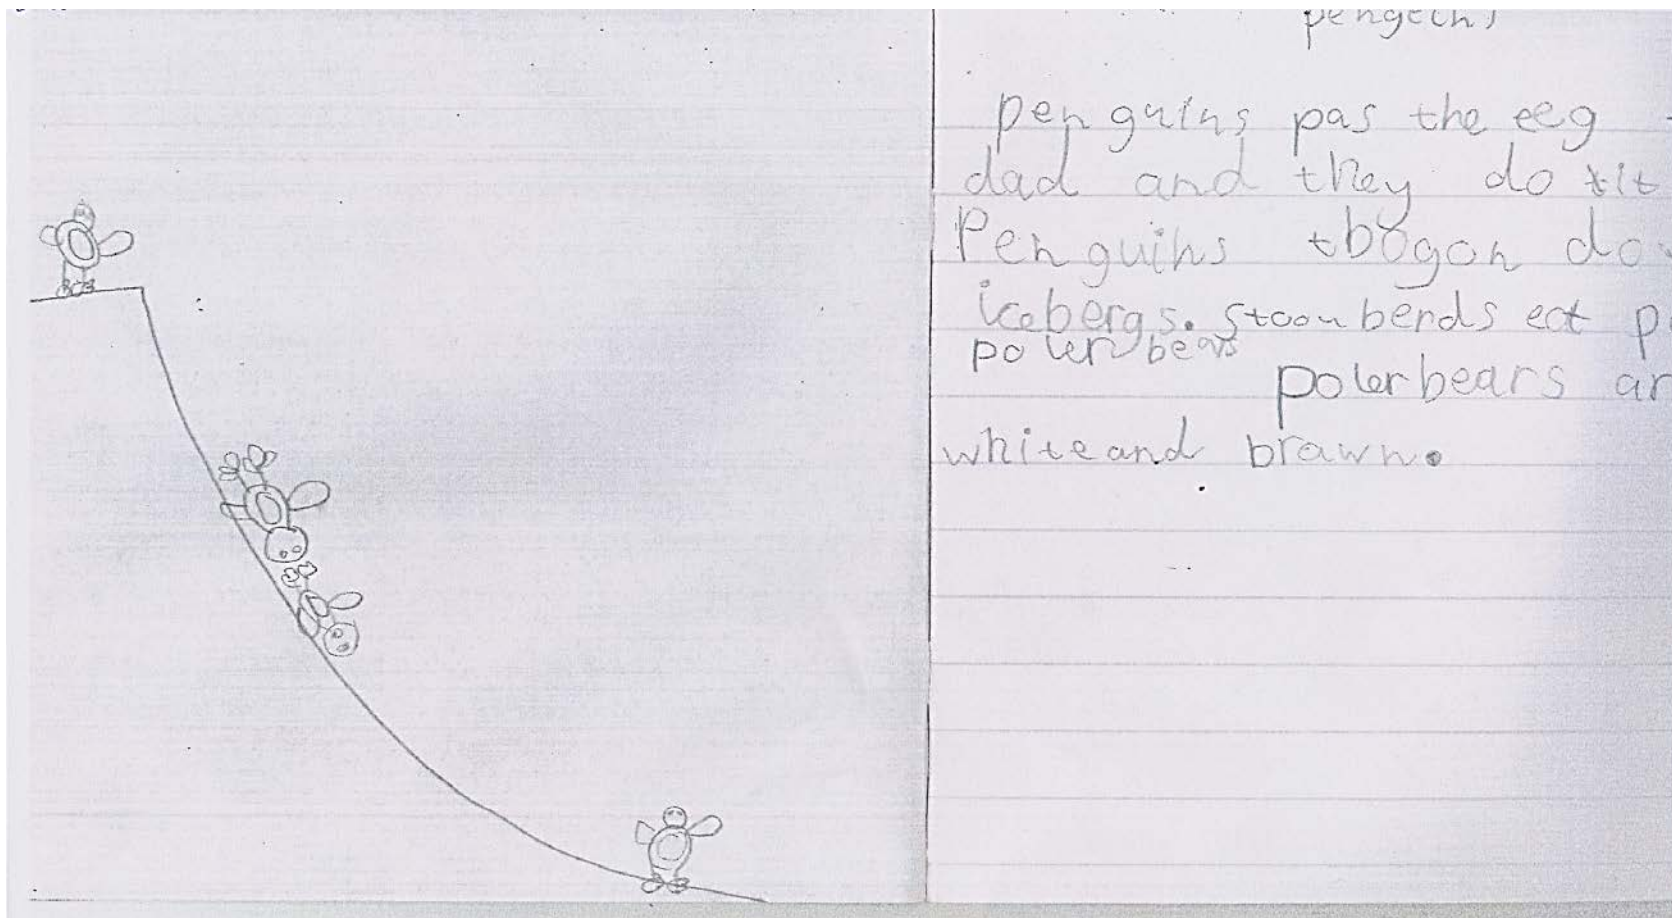 pengeins
penguins pas the eeg
dad and they do tit
Penguins tbogon do
icebergs. stoon berds eat p
poler bears
polerbears ar
white and brawn.